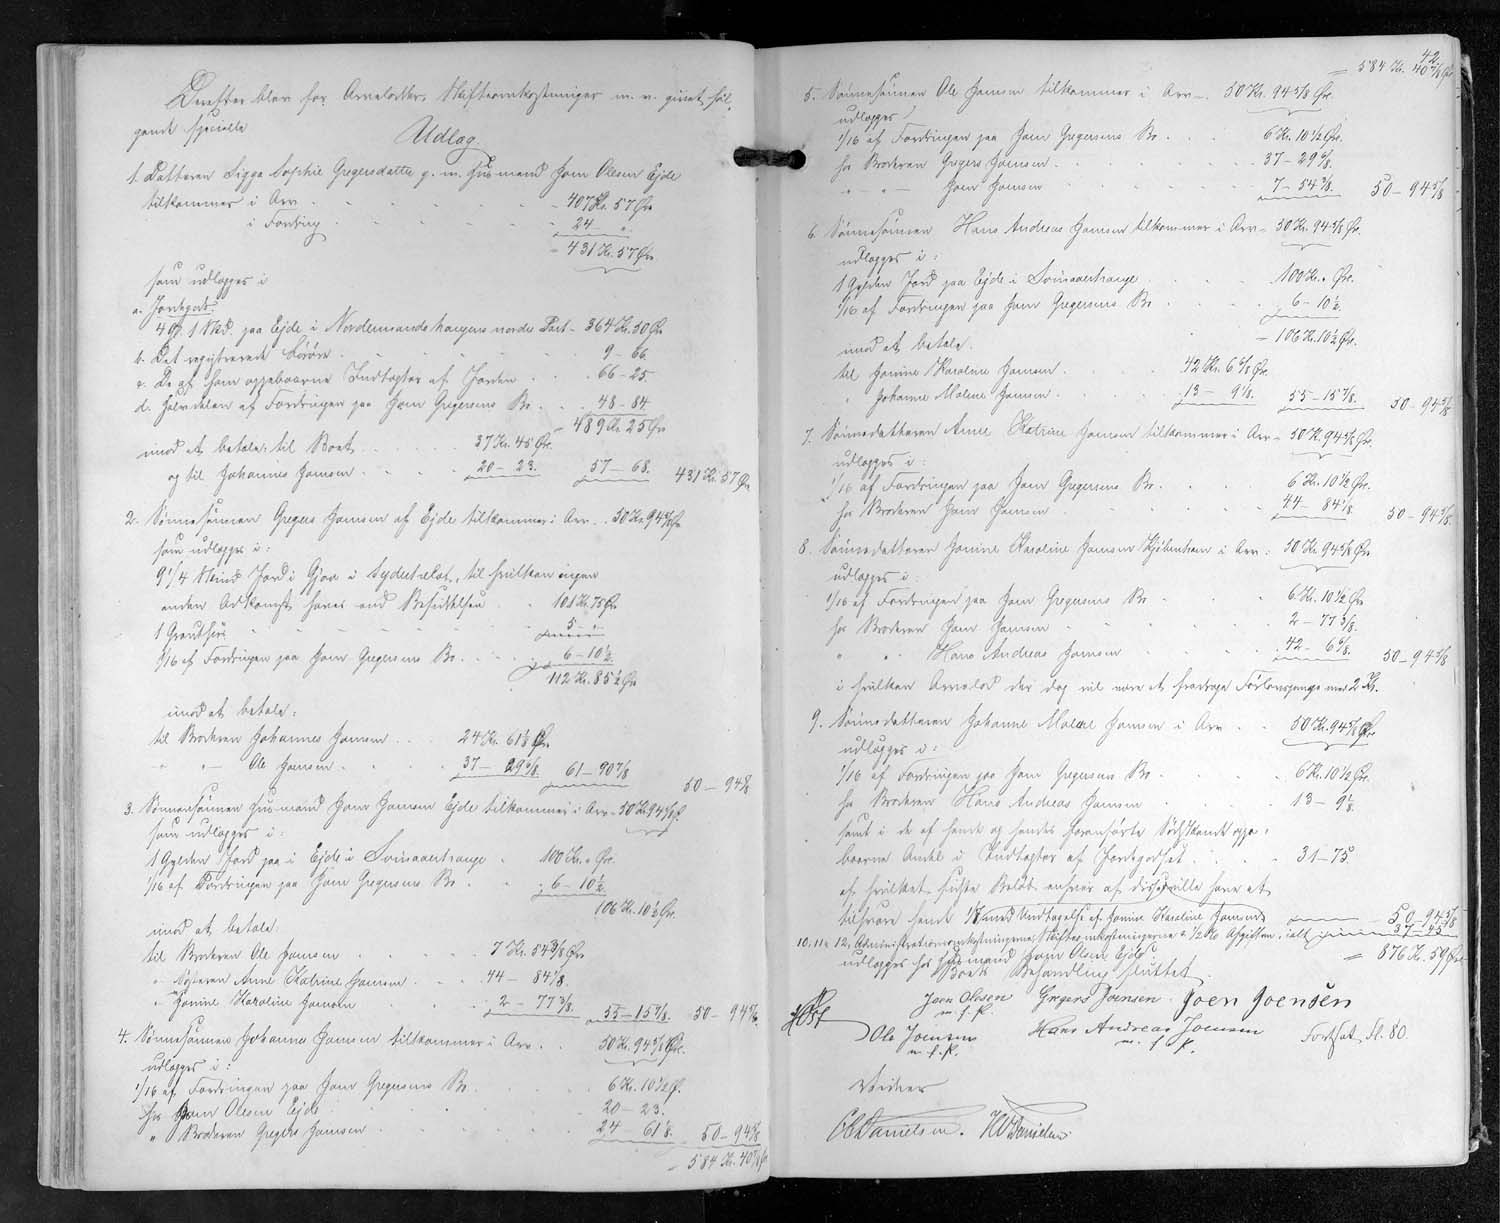 Derefter blev for Arvelodder, Skifteomkostninger m. v. gjort føl-
gende specielle
Udlæg.
1. Datteren Sigga Sophie Gregersdatter g. m. Husmand Joen Olesen Ejde
tilkommer i Arv - 407 Kr. 57 Øre
i Fordring 24 - "
= 431 Kr. 57 Øre
som udlægges i
a. Jordegods.
4 Gl. 1 Sk. paa Ejde i Nordermands haugens nordre Part - 364 Kr. 50 Øre
b. Det registrerede Løsøre 9 - 66.
c. De af ham oppebaarne Indtægter af Jorden 66 - 25.
d. Halvdelen af Fordringen paa Joen Gregersens Bo 48 - 84.
= 489 Kr. 25 Øre
imod at betale: til Boet 37 Kr. 45 Øre
og til Johannes Joensen 20 - 23. 57 - 68. 431 Kr. 57 Øre
2. Sønnesønnen Gregers Joensen af Ejde tilkommer i Arv 50 Kr. 94 5/8 Øre
som udlægges i:
9 1/4 Skind Jord i Gjov i Sydestelot, til hvilken ingen
anden Adkomst haves end Besiddelsen 101 Kr. 75 Øre
1 Grouthus 5 - "
1/16 af Fordringen paa Joen Gregersens Bo 6 - 10 1/2.
112 Kr. 85 1/2 Øre
imod at betale:
til Broderen Johannes Joensen 24 Kr. 61 1/8 Øre
" - Ole Joensen 37 - 29 6/8. 61 - 90 7/8 50 - 94 5/8
3. Sønnesønnen Husmand Joen Joensen Ejde tilkommer i Arv - 50 Kr. 94 5/8 Ø.
som udlægges i:
1 Gylden Jord paa i Ejde i Svinaaertrange 100 Kr. " Øre.
1/16 af Fordringen paa Joen Gregersens Bo 6 - 10 1/2.
106 Kr. 10 1/2 Øre.
imod at betale
til Broderen Ole Joensen 7 Kr. 54 3/8 Øre
" Søsteren Anne Katrine Joensen 44 - 84 1/8.
" Janine Karoline Joensen 2 - 77 3/8. 55 - 15 7/8. 50 - 94 5/8.
4. Sønnesønnen Johannes Joensen tilkommer i Arv 50 Kr. 94 5/8 Øre.
udlægges i:
1/16 af Fordringen paa Joen Gregersens Bo 6 Kr. 10 1/2 Ø.
hos Joen Olesen Ejde 20 - 23.
" Broderen Gregers Joensen 24 61 1/8. 50 - 94 5/8
= 584 Kr. 40 7/8 Øre
42
= 584 Kr. 40 7/8 Øre
5. Sønnesønnen Ole Joensen tilkommer i Arv - 50 Kr. 94 5/8 Øre.
udlægges i
1/16 af Fordringen paa Joen Gregersens Bo 6 Kr. 10 1/2 Øre.
hos Broderen Gregers Joensen 37 - 29 6/8.
" - " - Joen Joensen 7 - 54 3/8. 50 - 94 5/8
6. Sønnesønnen Hans Andreas Joensen tilkommer i Arv - 50 Kr. 94 5/8 Øre.
udlægges i:
1 Gylden Jord paa Ejde i Svinaaertrange 100 Kr. " Øre.
1/16 af Fordringen paa Joen Gregersens Bo 6 - 10 1/2.
= 106 Kr. 10 1/2 Øre.
imod at betale.
til Janine Karoline Joensen 42 Kr. 6 6/8 Øre.
" Johanne Malene Joensen 13 - 9 1/8. 55 - 15 7/8. 50 - 94 5/8
7. Sønnedatteren Anne Katrine Joensen tilkommer i Arv - 50 Kr. 94 5/8 Øre.
udlægges i:
1/16 af Fordringen paa Joen Gregersens Bo 6 Kr. 10 1/2 Øre.
hos Broderen Joen Joensen 44 - 84 1/8. 50 - 94 5/8.
8. Sønnedatteren Janine Karoline Joensen Kjøbenhavn i Arv: 50 Kr. 94 5/8 Øre
udlægges i:
1/16 af Fordringen paa Joen Gregersens Bo 6 Kr. 10 1/2 Øre
hos Broderen Joen Joensen 2 - 77 3/8.
" " Hans Andreas Joensen 42 - 6 6/8. 50 - 94 5/8
i hvilken Arvelod der dog vil være at fradrage Forlovspenge med 2 Kr.
9. Sønnedatteren Johanne Malene Joensen i Arv 50 Kr. 94 5/8 Øre
udlægges i:
1/16 af Fordringen paa Joen Gregersens Bo 6 Kr. 10 1/2 Øre.
hos Broderen Hans Andreas Joensen 13 - 9 1/8.
samt i de af hende og hendes foranførte Sødskende oppe-
baarne Andel i Indtægter af Jordegodset 31 - 75.
af hvilket sidste Beløb enhver af disse ville have at
tilsvare hende 1/8 med Undtagelse af Janine Karoline Joensen 50 - 94 5/8
10. 11 & 12. Administrationsomkostningerne, Skifteomkostningerne & 1/2 % Afgiften, ialt 37 - 45
udlægges hos Husmand Joen Olesen Ejde = 876 Kr. 59 Øre
Boets Behandling sluttet.
Joen Olesen Gregers Joensen. Joen Joensen
m. f. P.
Høst
Ole Joensen Hans Andreas Joensen Fortsat Fl. 80.
m. f. P. m. f. P.
Vidner
O C Danielsen. H W Danielsen